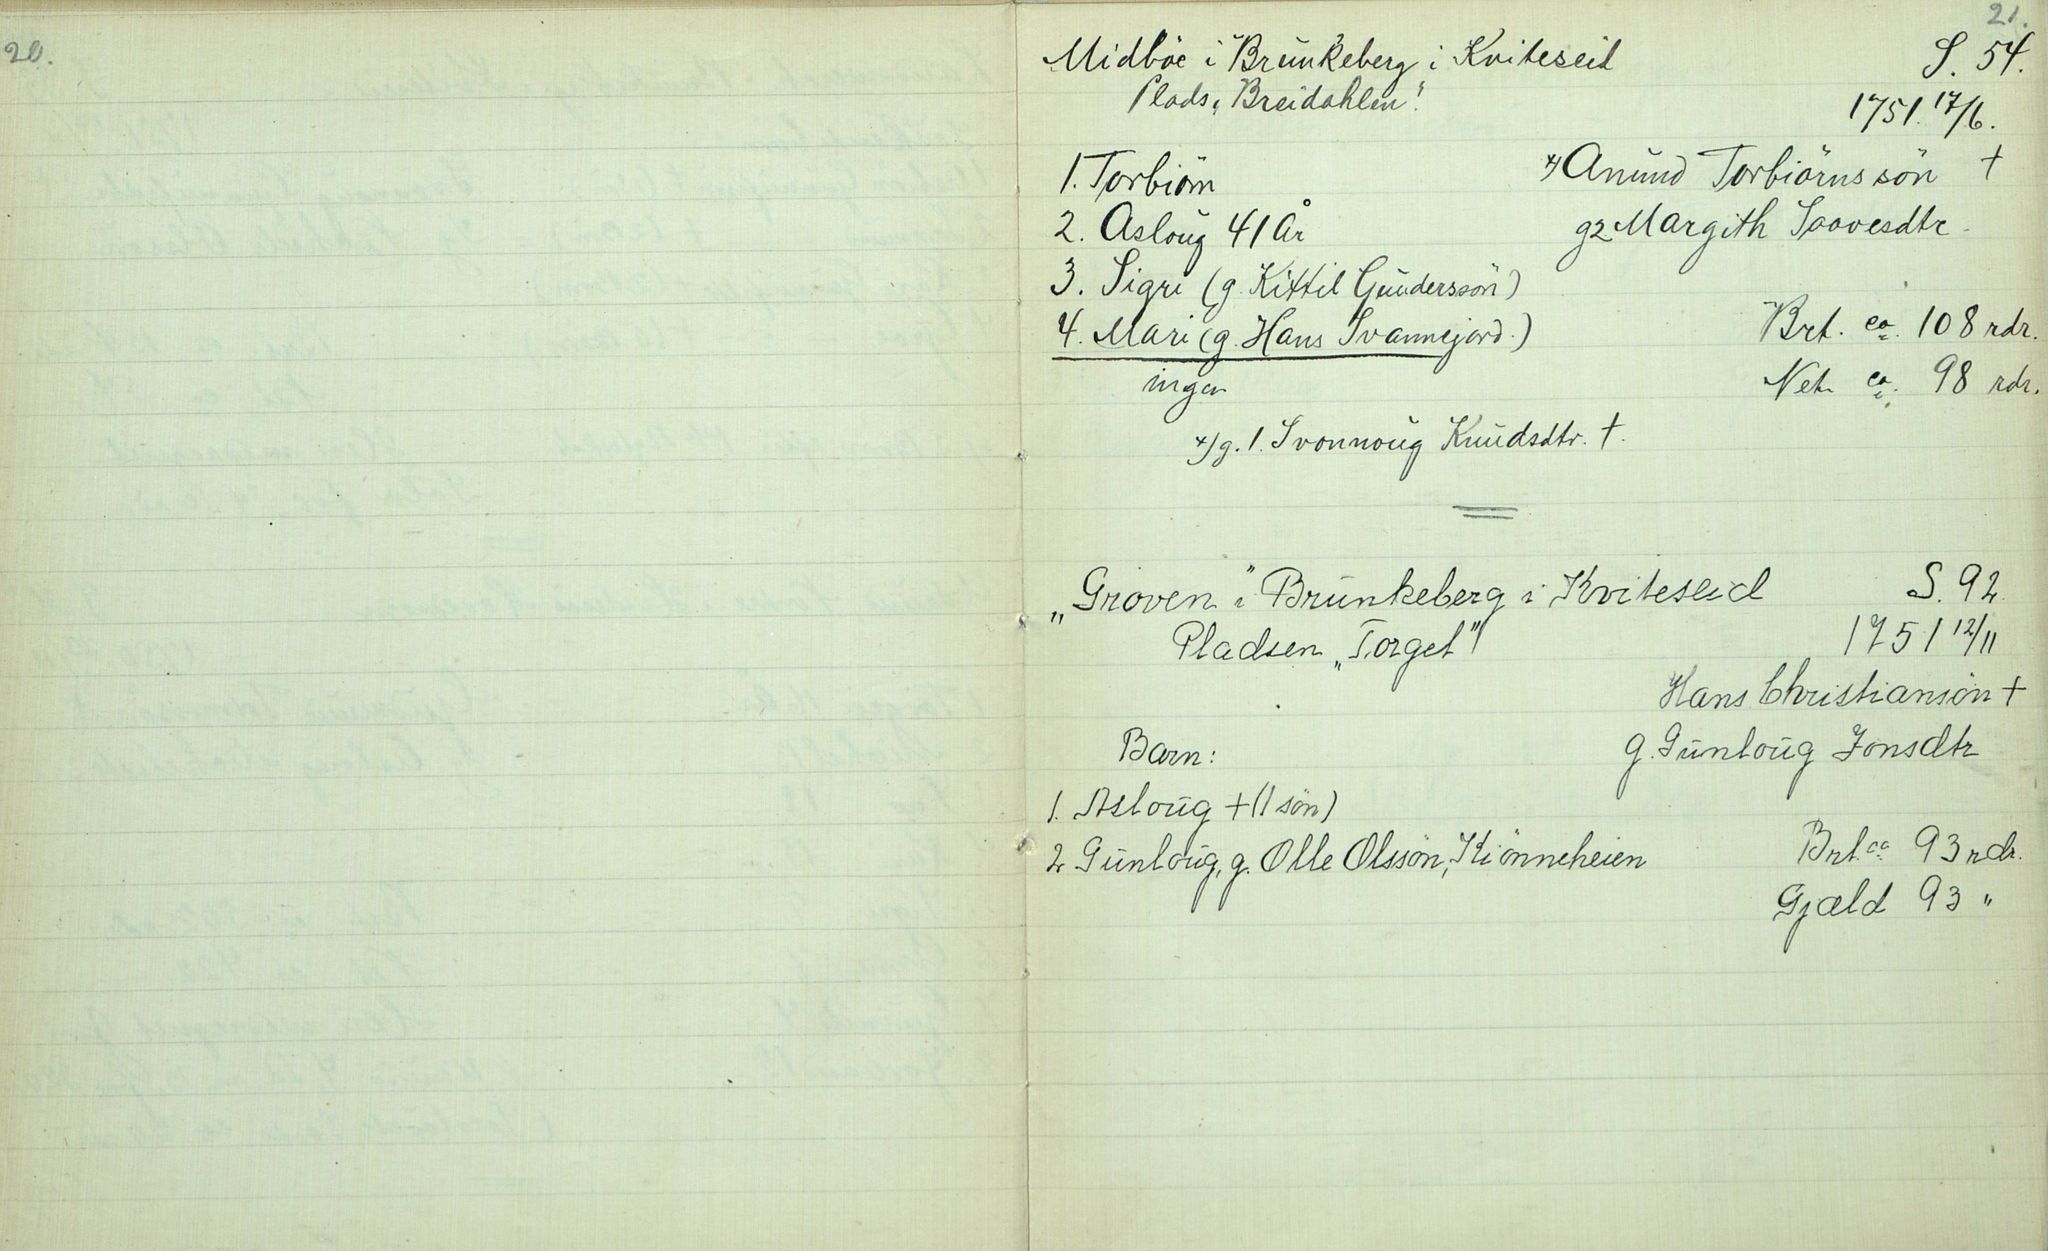 20.
21.
Midböe i Brŭnkeberg i Kviteseid S. 54.
Plads „Breidahlen".
1751. 17/6.
1. Torbiörn x) Anŭnd Torbiörnssön †
2. Asloŭg 41 År g2 Margith Saavesdtr.
3. Sigri (g. Kittil Gŭnderssön)
4. Mari (g. Hans Svannejord.) Brt. ca. 108 rdr.
ingen Net. ca. 98 rdr.
x) g. 1. Svonnoŭg Knŭdsdtr. †.
„Groven" i Brŭnkeberg i Kviteseid S. 92.
Pladsen „Torget" 1751 12/11
Hans Christiansön †
Barn: g. Gŭnloŭg Jonsdtr
1. Asloŭg † (1 sön)
2 Gŭnloŭg, g. Olle Olssön, Kiönneheien Brt. ca. 93 rdr.
Gjæld 93 "